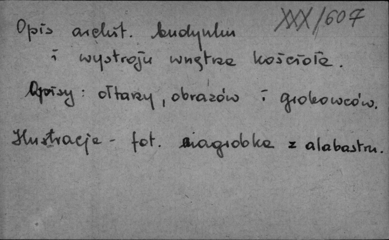 XXX/607
Opis archit. budynku
i wystroju wnętrza kościoła.
Opisy: ołtarzy, obrazów i grobowców.
Ilustracje - fot. nagrobka z alabastru.